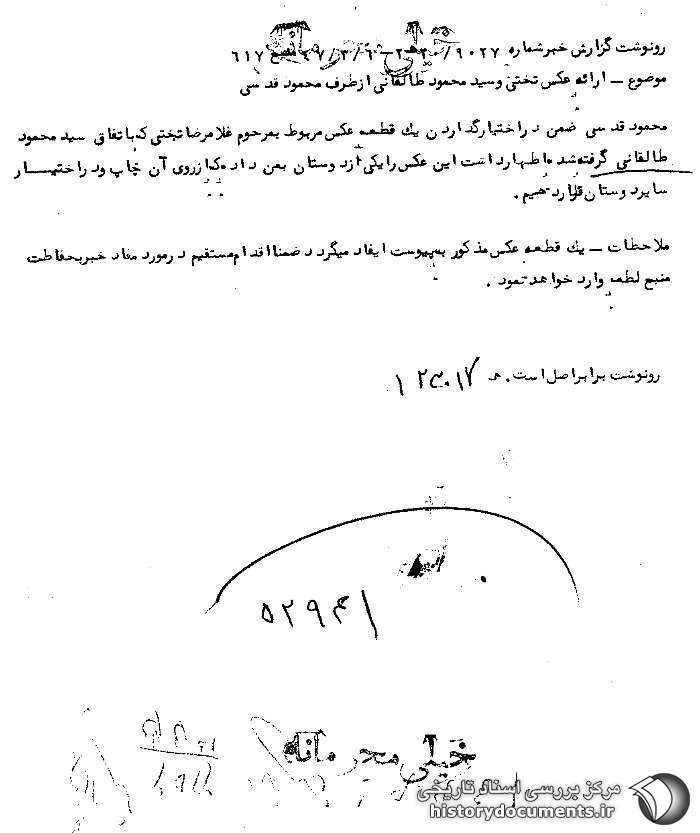 خیلی محرمانه
رونوشت گزارش خبر شماره ۹۰۲۷/
موضوع ــ ارائه عکس تختی و سید محمود طالقانی از طرف محمود قدسی
محمود قدسی ضمن در اختیار گذاردن یك قطعه عکس مربوط به مرحوم غلامرضا تختی که با تفاق سید محمود
طالقانی گرفته شده اظهار داشت این عکس را یکی از دوستان بمن داده که از روی آن چاپ و در اختیار
سایر دوستان قرار دهیم .
ملاحظات ــ یك قطعه عکس مذکور به پیوست ایفاد میگردد ضمنا اقدام مستقیم در مورد مفاد خبر بحفاظت
منبع لطمه وارد خواهد نمود .
رونوشت برابر اصل است . هـ
خیلی محرمانه
مرکز بررسی اسناد تاریخی
historydocuments.ir